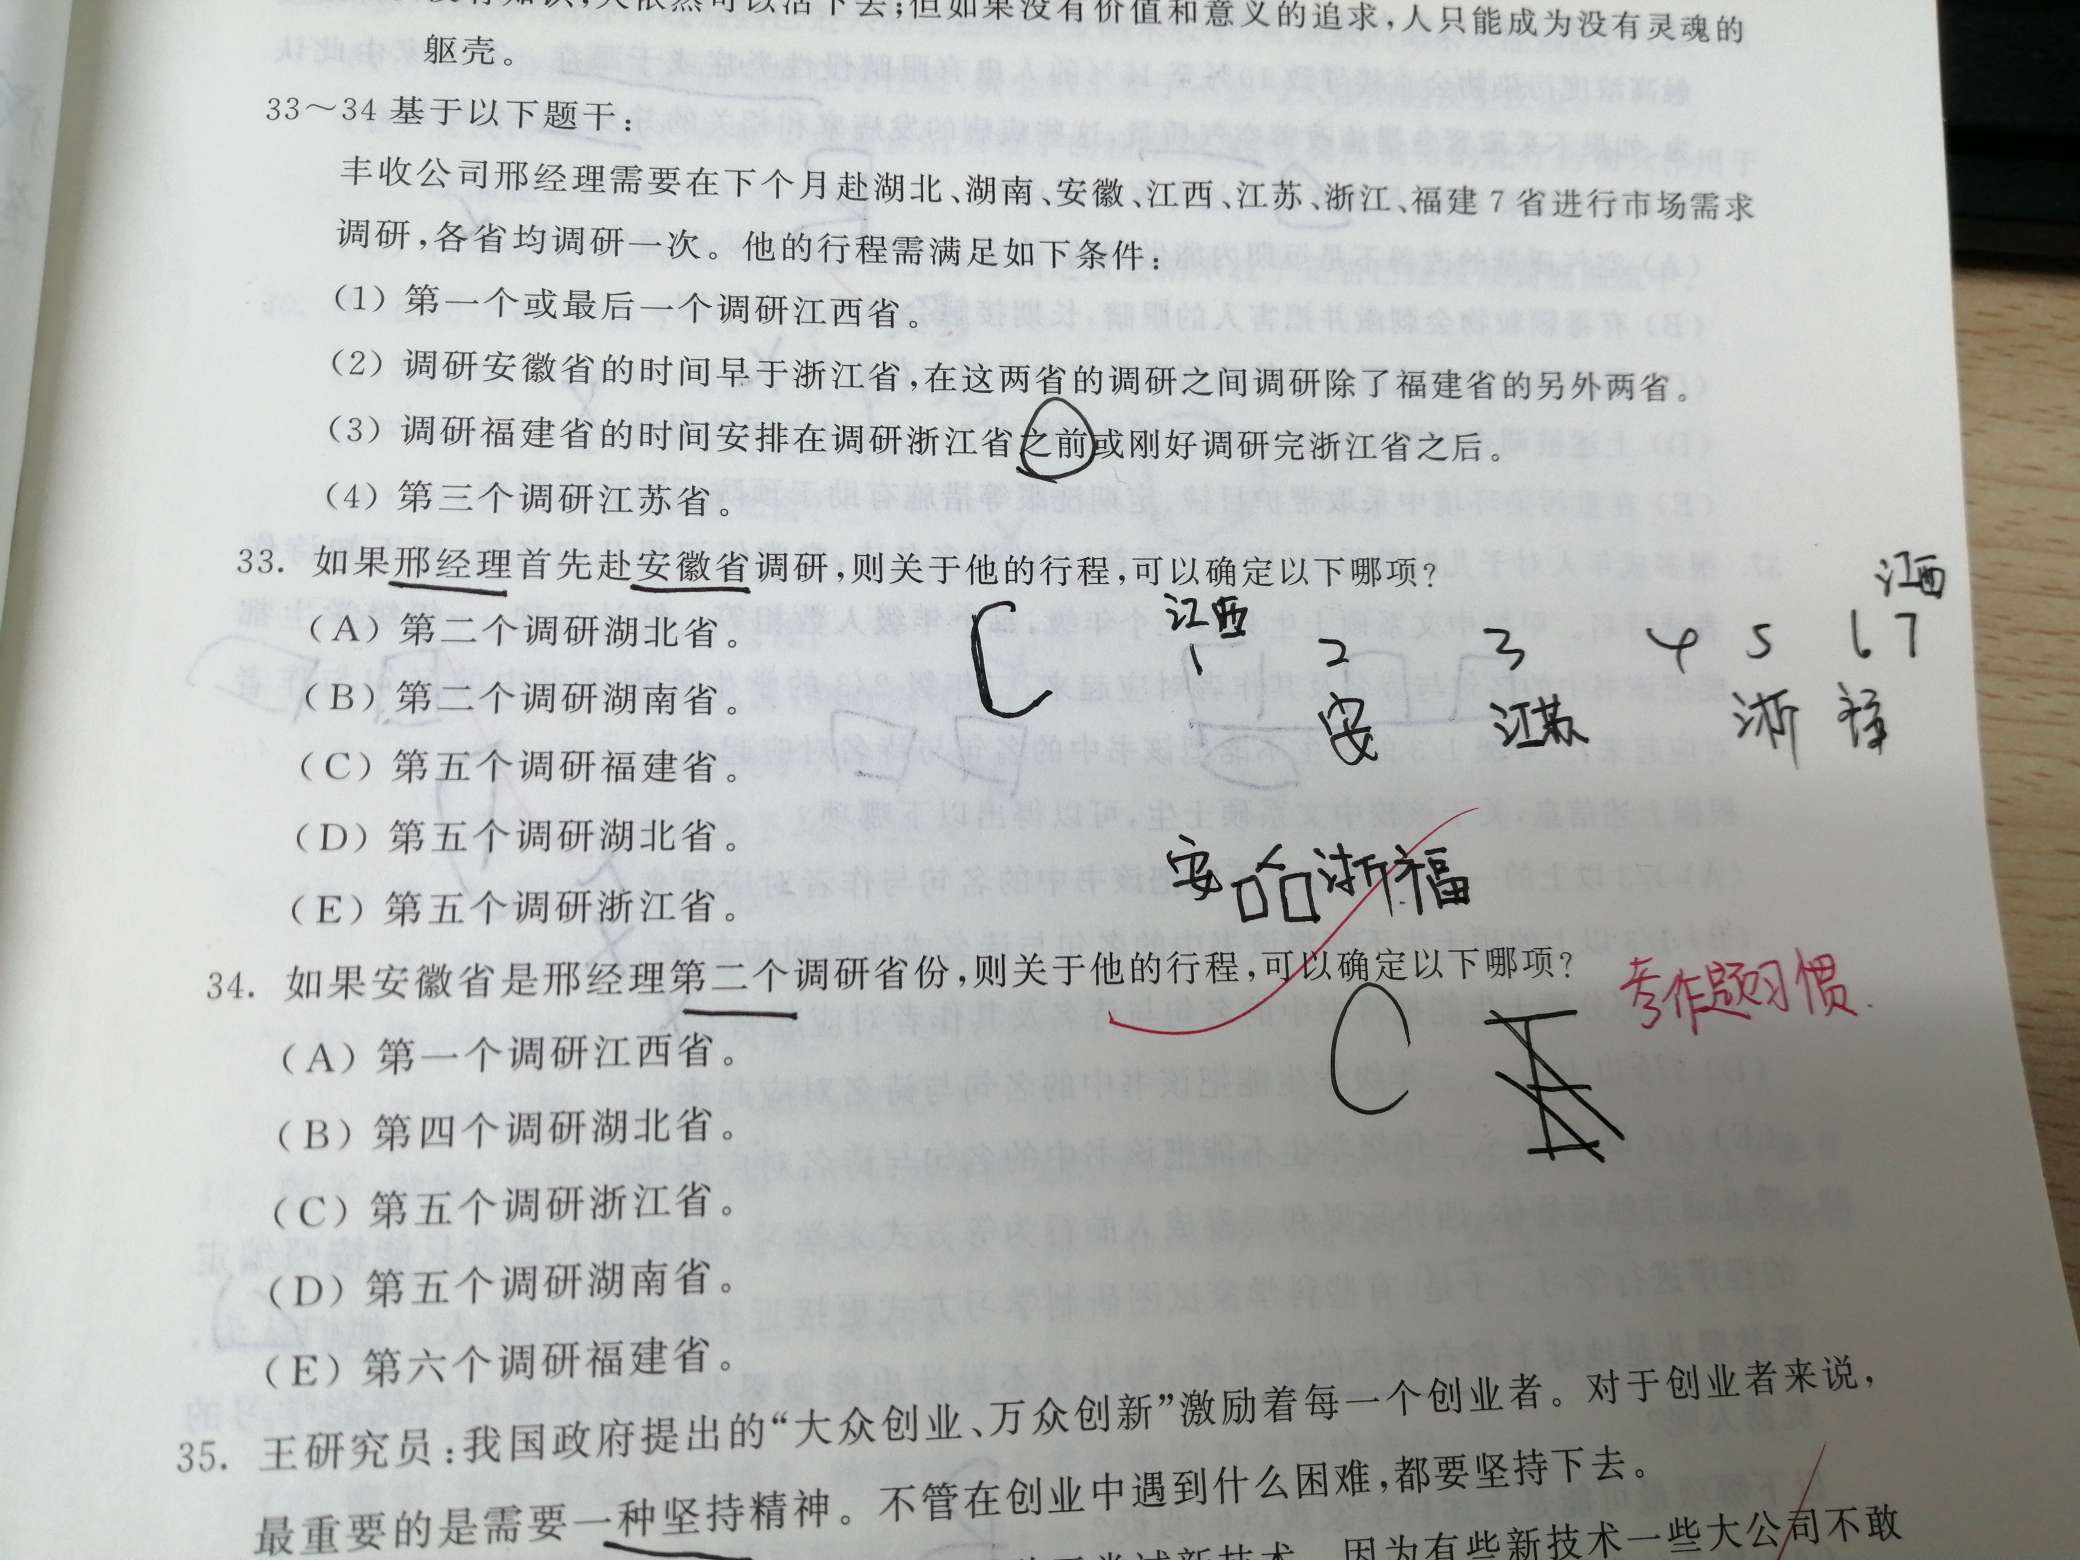 没有知识,人依然可以活下去;但如果没有价值和意义的追求,人只能成为没有灵魂的
躯壳。
33～34 基于以下题干:
丰收公司邢经理需要在下个月赴湖北、湖南、安徽、江西、江苏、浙江、福建 7 省进行市场需求
调研,各省均调研一次。他的行程需满足如下条件:
(1) 第一个或最后一个调研江西省。
(2) 调研安徽省的时间早于浙江省,在这两省的调研之间调研除了福建省的另外两省。
(3) 调研福建省的时间安排在调研浙江省之前或刚好调研完浙江省之后。
(4) 第三个调研江苏省。
33. 如果邢经理首先赴安徽省调研,则关于他的行程,可以确定以下哪项?
江西
(A) 第二个调研湖北省。
C 江西
1 2 3 4 5 6 7
(B) 第二个调研湖南省。
安 江苏 浙
(C) 第五个调研福建省。
(D) 第五个调研湖北省。
安 口口 浙 福
(E) 第五个调研浙江省。
34. 如果安徽省是邢经理第二个调研省份,则关于他的行程,可以确定以下哪项?
考作题习惯.
C
(A) 第一个调研江西省。
(B) 第四个调研湖北省。
(C) 第五个调研浙江省。
(D) 第五个调研湖南省。
(E) 第六个调研福建省。
35. 王研究员:我国政府提出的“大众创业、万众创新”激励着每一个创业者。对于创业者来说,
最重要的是需要一种坚持精神。不管在创业中遇到什么困难,都要坚持下去。
尝试新技术。因为有些新技术一些大公司不敢